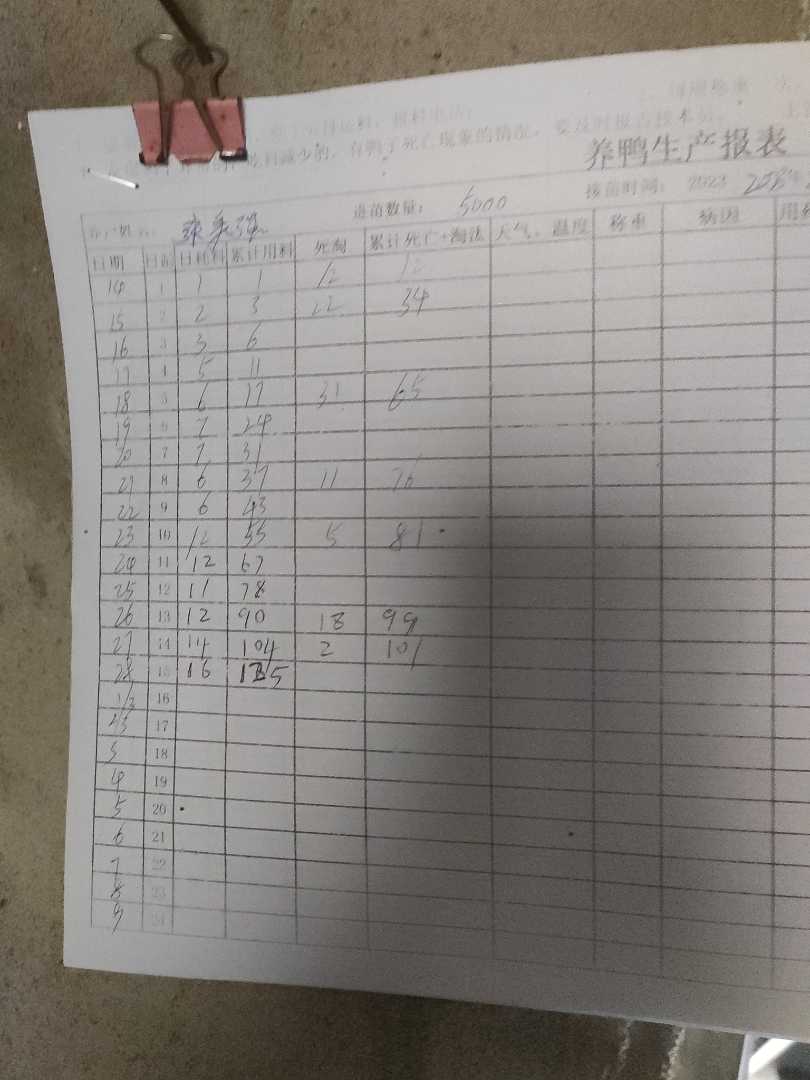 养鸭生产报表
进苗数量: 5000 接苗时间: 2023
日期 日龄 日耗料 累计用料 死淘 累计死亡+淘汰 天气、温度 称重 病因
14 1 1 1 12 12
15 2 2 3 22 34
16 3 3 6
17 4 5 11
18 5 6 17 31 65
19 6 7 24
20 7 7 31
21 8 6 37 11 76
22 9 6 43
23 10 12 55 5 81
24 11 12 67
25 12 11 78
26 13 12 90 18 99
27 14 14 104 2 101
28 15 16
1/3 16
2/3 17
3 18
4 19
5 20
6 21
7 22
8 23
9 24